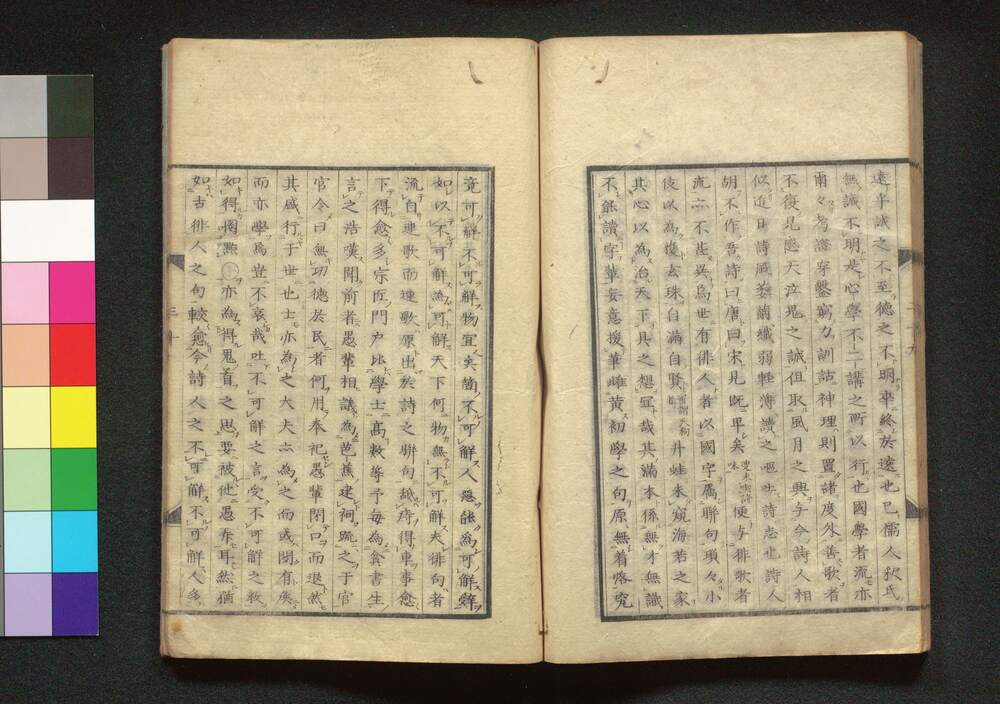 遠乎誠之不至德之不明卒終於遠也已儒人釈氏
無誠不明是心學不二講之所以行也國學者流亦
爾々考證穿鑿窮力訓詁神理則置諸度外善歌者
不復見感天泣鬼之誠徂取風月之興与今詩人相
似近日詩風萎薾纖弱輕薄讀之嘔吐詩志也詩人
胡不作吾詩曰唐曰宋見既卑矣 便与俳歌者
流亦不些異焉世有俳人者以國字屬聯句瑣々小
伎以為獲玄珠自滿自賢 井蛙未窺海若之家
其心以為治天下具之想宜哉其滿本係無才無識
不能讀字華妄意援筆雌黄初學之句原無着落究
竟可解不可解物宜矣蔔不可解人惡能為可解辭
如以不可解為可解天下何物無不可解夫俳句者
流自連歌而連歌原出於詩之聯句越得車事愈
下得愈多宗匠門户比學士高數等予每為貧書生
言之浩嘆聞前者愚輩相議為芭蕉建祠䟽之于官
官令曰無功德於民者何用奉祀愚輩閉口而退然
其盛行于世世士亦為之大夫亦為之而或聞有侯
而亦學為豈不哀哉吐不可解之言受不可解之教
如得閻㸃 亦為得鬼首之思要被他愚弄耳然猶
如古俳人之句較愈今詩人之不可解不可解人多
三十